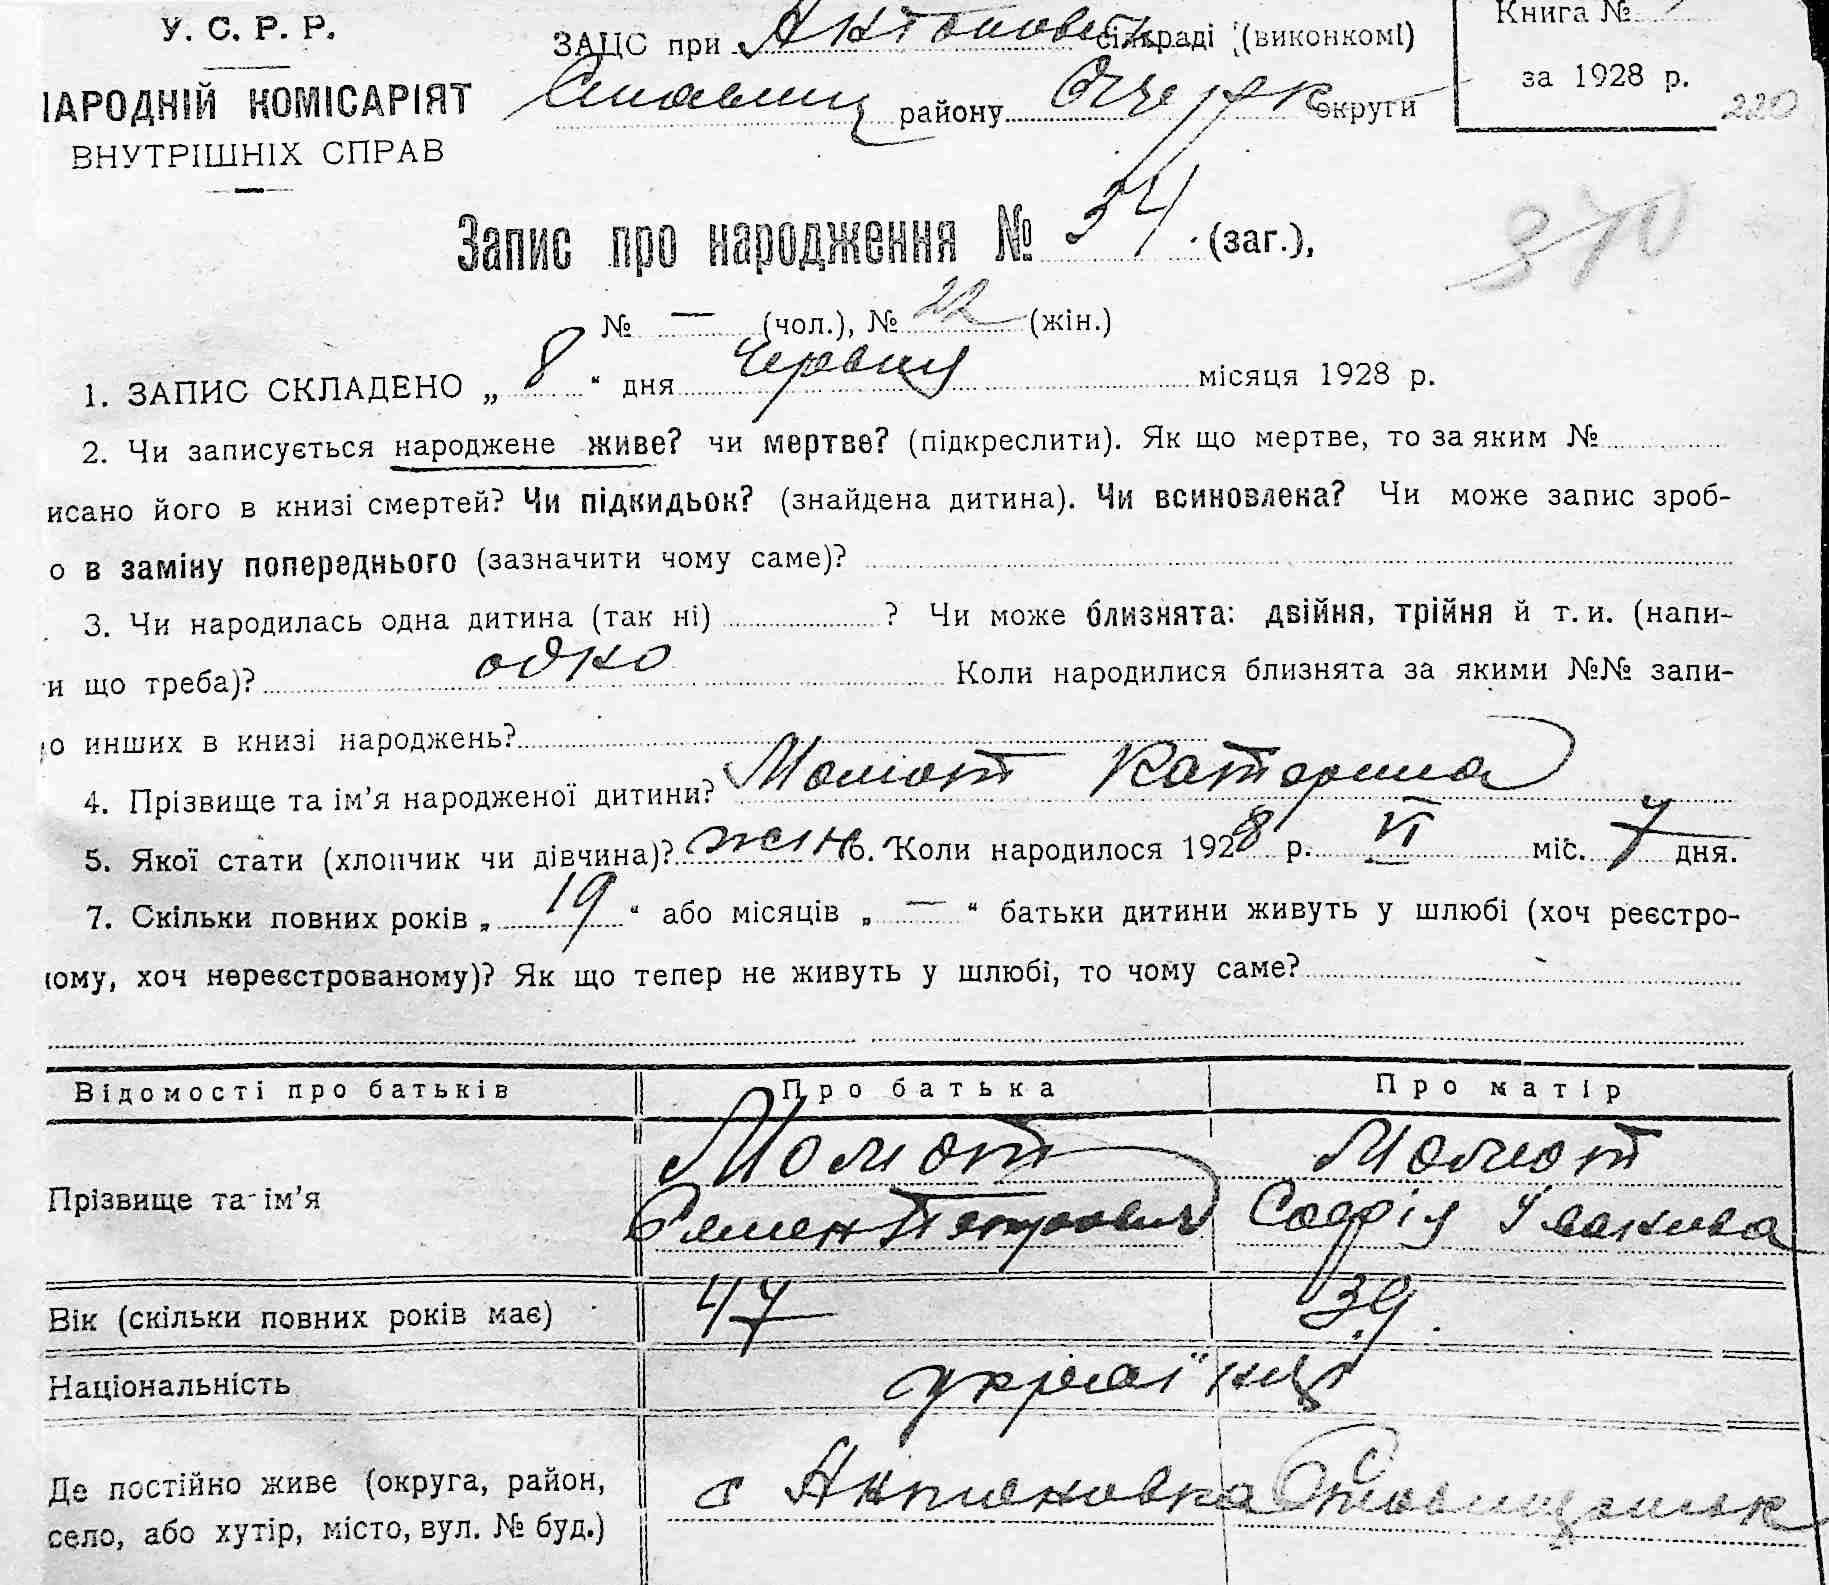 У. С. Р. Р.
НАРОДНІЙ КОМІСАРІЯТ
ВНУТРІШНІХ СПРАВ
ЗАЦС при Антоновськ сільраді (виконкомі)
району округи
Книга №
за 1928 р.
220
Запис про народження № 54 (заг.),
370
№ — (чол.), № 22 (жін.)
1. ЗАПИС СКЛАДЕНО „ 8 “ дня Червня місяця 1928 р.
2. Чи записується народжене живе? чи мертве? (підкреслити). Як що мертве, то за яким №
исано його в книзі смертей? Чи підкидьок? (знайдена дитина). Чи всиновлена? Чи може запис зроб-
о в заміну попереднього (зазначити чому саме)?
3. Чи народилась одна дитина (так ні) ? Чи може близнята: двійня, трійня й т. и. (напи-
и що треба)? одно Коли народилися близнята за якими №№ запи-
о инших в книзі народжень?
4. Прізвище та ім’я народженої дитини? Момот Катерина
5. Якої стати (хлопчик чи дівчина)? жін 6. Коли народилося 1928 р. VI міс. 7 дня.
7. Скільки повних років „ 19 “ або місяців „ — “ батьки дитини живуть у шлюбі (хоч реєстро-
ому, хоч нереєстрованому)? Як що тепер не живуть у шлюбі, то чому саме?
Відомості про батьків Про батька Про матір
Прізвище та ім’я
Момот Момот
Семен Петрович Софія Іванівна
Вік (скільки повних років має) 47 39
Національність українці
Де постійно живе (округа, район,
село, або хутір, місто, вул. № буд.)
с Антоновка